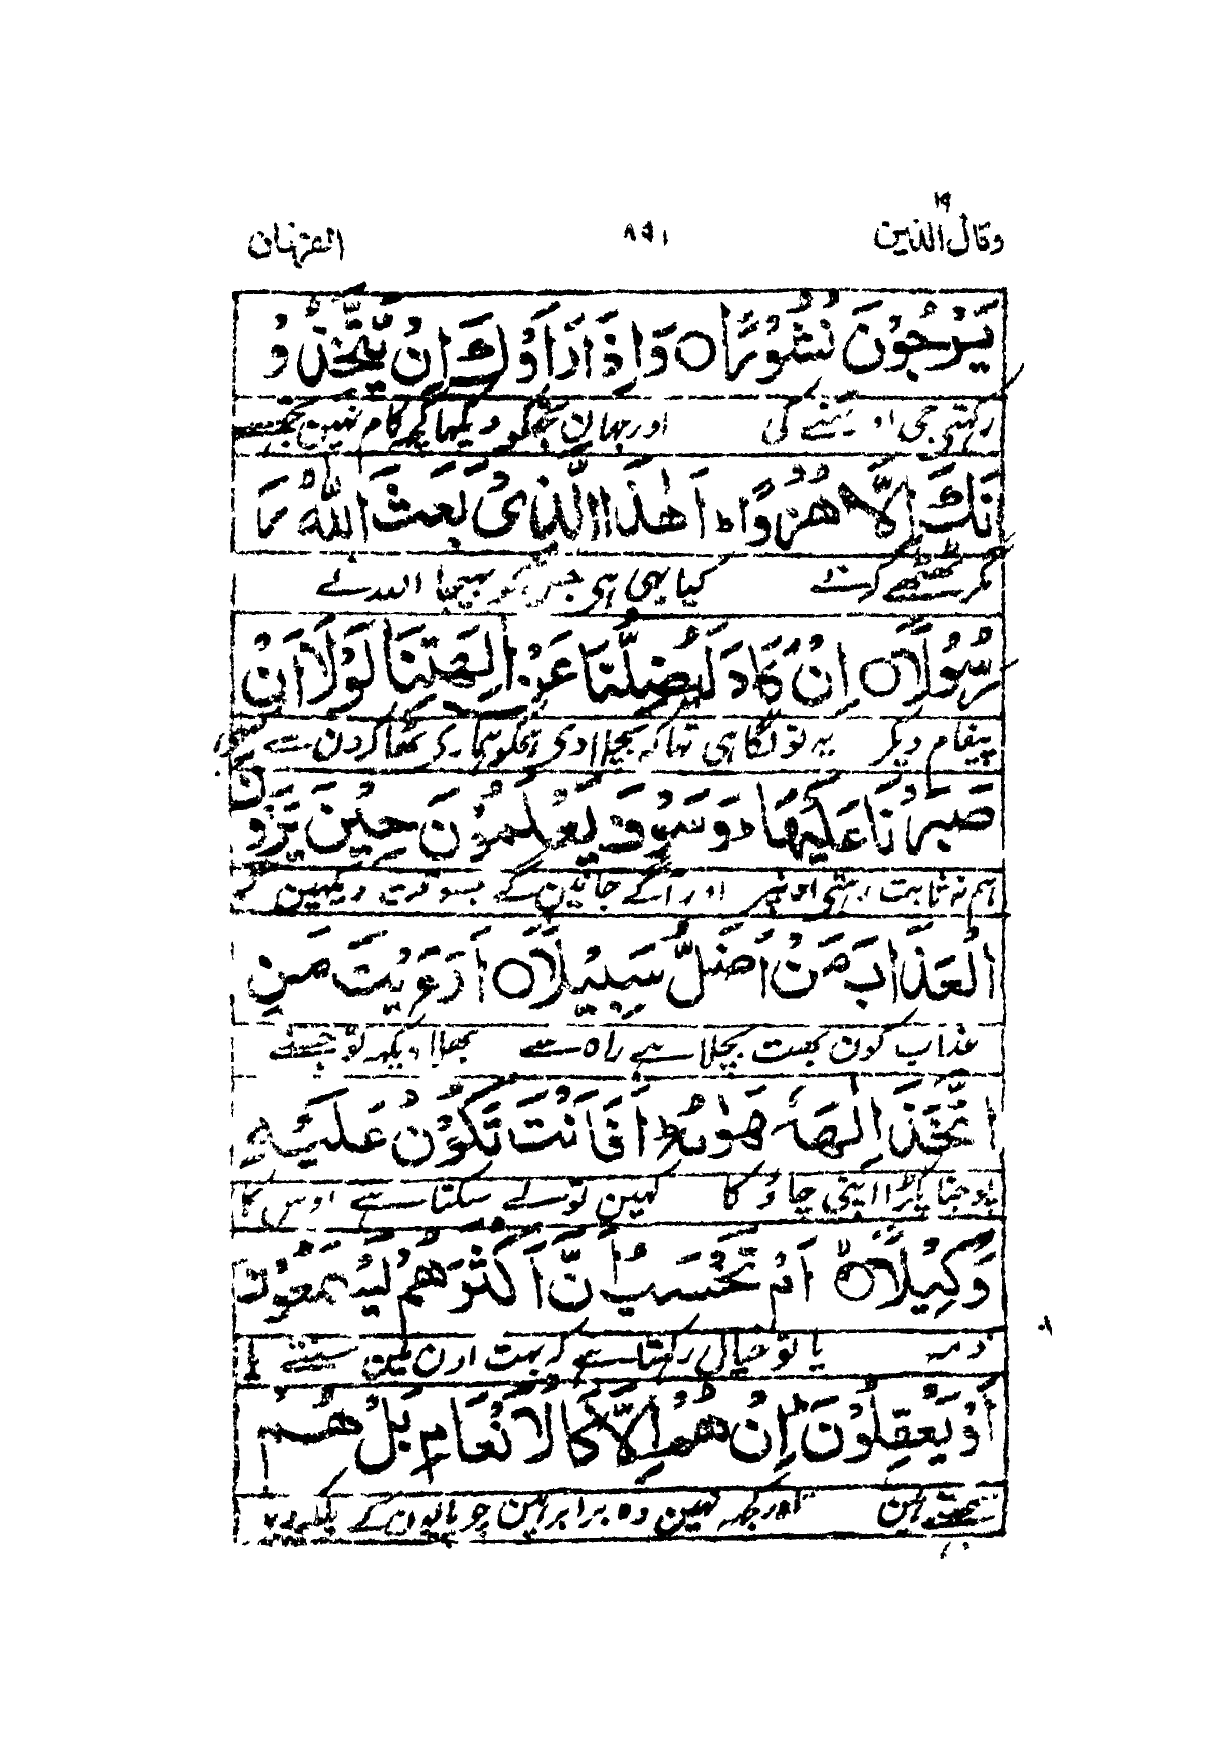 وقال الذین ۱۹
۸۵۱
الفرقان
یَرْجُوْنَ نُشُوْرًا ○ وَاِذَا رَاَوْكَ اِنْ یَّتَّخِذُوْ
رکہتی جی اوٹہنے کی اور جہان تجھکو دیکہا کچھ کام نہین تجھسے
نَكَ اِلَّا هُزُوًا ؕ اَهٰذَا الَّذِیْ بَعَثَ اللّٰهُ رَ
مگر ٹھٹھے کرتے کیا یہی ہی جس کو بہیجا اللہ نے
رَّسُوْلًا ○ اِنْ كَادَ لَیُضِلُّنَا عَنْ اٰلِهَتِنَا لَوْلَاۤ اَنْ
پیغام دیکر یہ تو لگا ہی تہا کہ بچلا دی ہمکو ہماری ٹھاکردن سے کبھی
صَبَرْنَا عَلَیْهَا ؕ وَسَوْفَ یَعْلَمُوْنَ حِیْنَ یَرَوْنَ
ہم نہ ثابت رہتی اونپر اور آگے جانین گے جسوقت دیکہین گے
الْعَذَابَ مَنْ اَضَلُّ سَبِیْلًا ○ اَرَءَیْتَ مَنِ
عذاب کون بہت بچلا ہے راہ سے بھلا دیکہہ تو جسنے
اتَّخَذَ اِلٰهَهٗ هَوٰىهُ ؕ اَفَاَنْتَ تَكُوْنُ عَلَیْهِ
پوجنا پکڑا اپنی چاؤ کا کہین تو لے سکتا ہے اوس کا
وَكِیْلًا ○ اَمْ تَحْسَبُ اَنَّ اَكْثَرَهُمْ یَسْمَعُوْنَ
ذمہ یا تو خیال رکہتا ہے کہ بہت اون مین سنتے
اَوْ یَعْقِلُوْنَ ؕ اِنْ هُمْ اِلَّا كَالْاَنْعَامِ بَلْ هُمْ
سمجھتے ہین اور کچہہ نہین وہ برابر ہین چوپایون کے بلکہ وہ